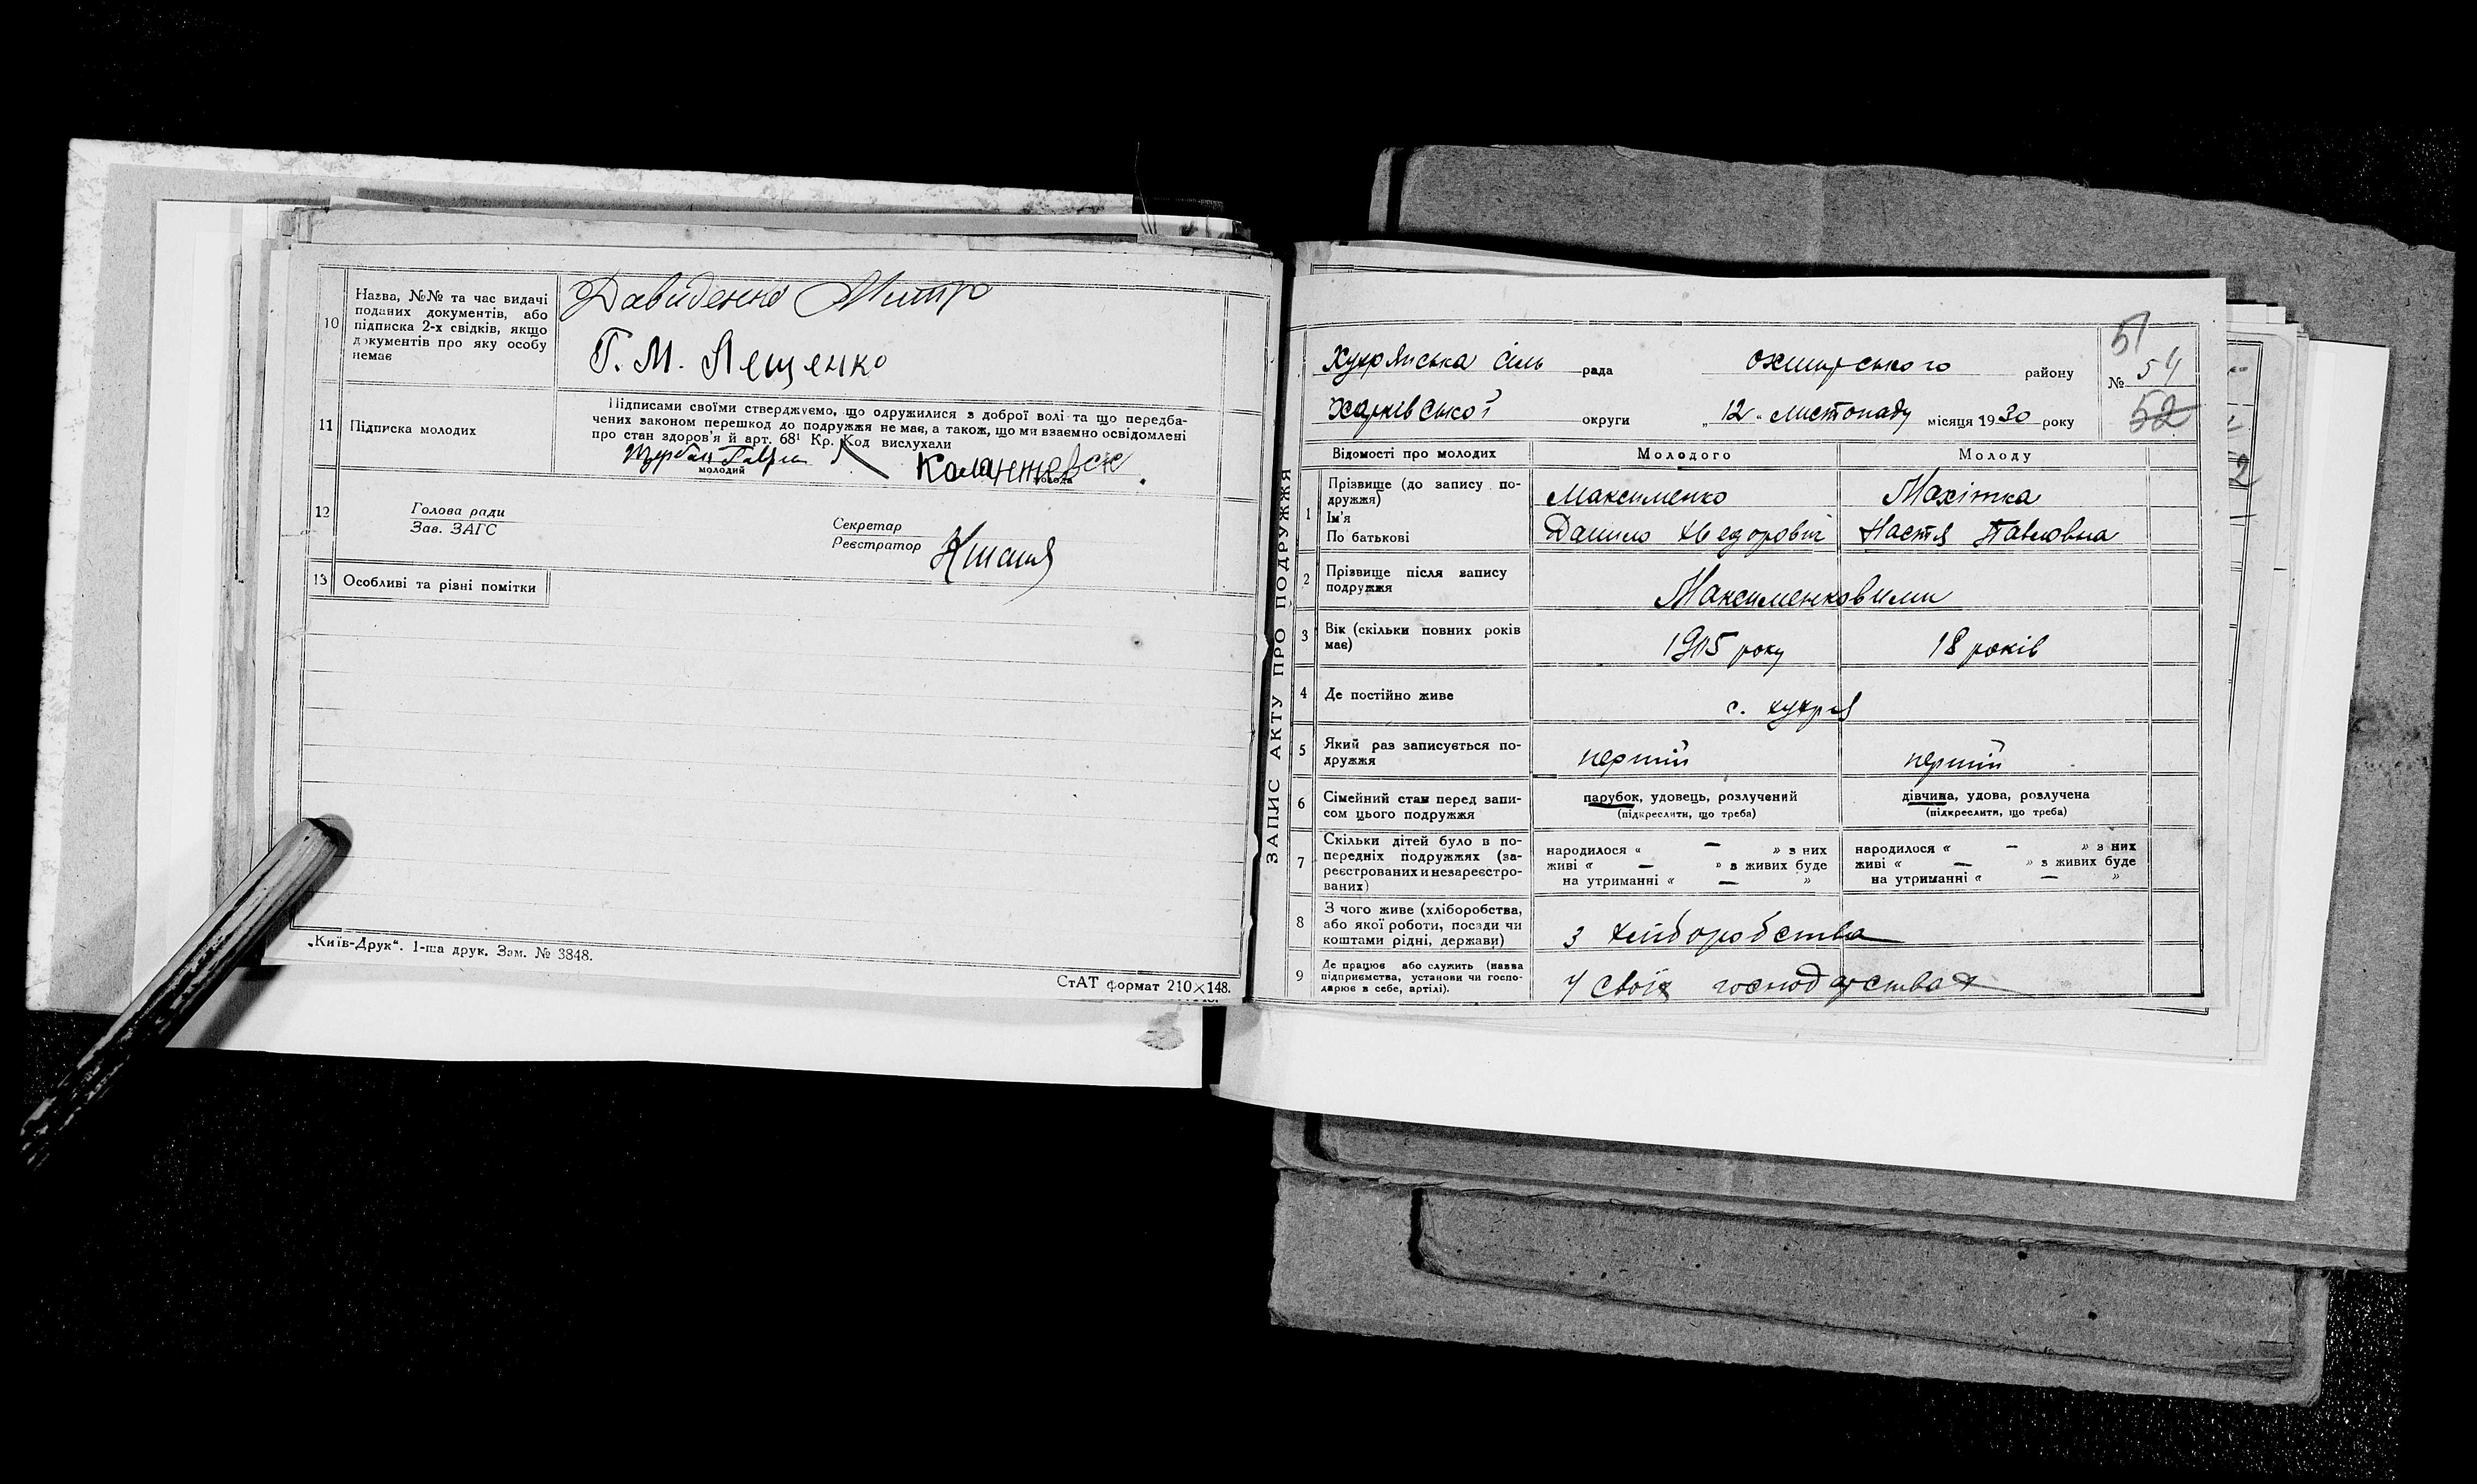 10
Назва, №№ та час видачі
поданих документів, або
підписка 2-х свідків, якщо
документів про яку особу
немає
Давиденко Митро
Г. М. Лещенко
11
Підписка молодих
Підписами своїми стверджуємо, що одружилися з доброї волі та що передба-
чених законом перешкод до подружжя не має, а також, що ми взаємно освідомлені
про стан здоров'я й арт. 68¹ Кр. Код вислухали
молодий
молода
12
Голова ради
Зав. ЗАГС
Секретар
Реєстратор
13
Особливі та різні помітки
„Київ-Друк“. 1-ша друк. Зам. № 3848.
СтАТ формат 210×148.
ЗАПИС АКТУ ПРО ПОДРУЖЖЯ
51
Хухрянська сіль рада Охтирського району
№ 54
Харківської округи „12“ листопаду місяця 1930 року
52
Відомості про молодих
Молодого
Молоду
1
Прізвище (до запису по-
дружжя)
Ім'я
По батькові
Максименко
Данило Хведорович
Махітка
Настя Павловна
2
Прізвище після запису
подружжя
Максименковими
3
Вік (скільки повних років
має)
1905 року
18 років
4
Де постійно живе
с. Хухря
5
Який раз записується по-
дружжя
перший
перший
6
Сімейний стан перед запи-
сом цього подружжя
парубок, удовець, розлучений
(підкреслити, що треба)
дівчина, удова, розлучена
(підкреслити, що треба)
7
Скільки дітей було в по-
передніх подружжях (за-
реєстрованих и незареєстро-
ваних)
народилося « — » з них
живі « — » з живих буде
на утриманні « — »
народилося « — » з них
живі « — » з живих буде
на утриманні « — »
8
З чого живе (хліборобства,
або якої роботи, посади чи
коштами рідні, держави)
З хліборобства
9
Де працює або служить (назва
підприємства, установи чи госпо-
дарює в себе, артілі).
У своїх господарствах